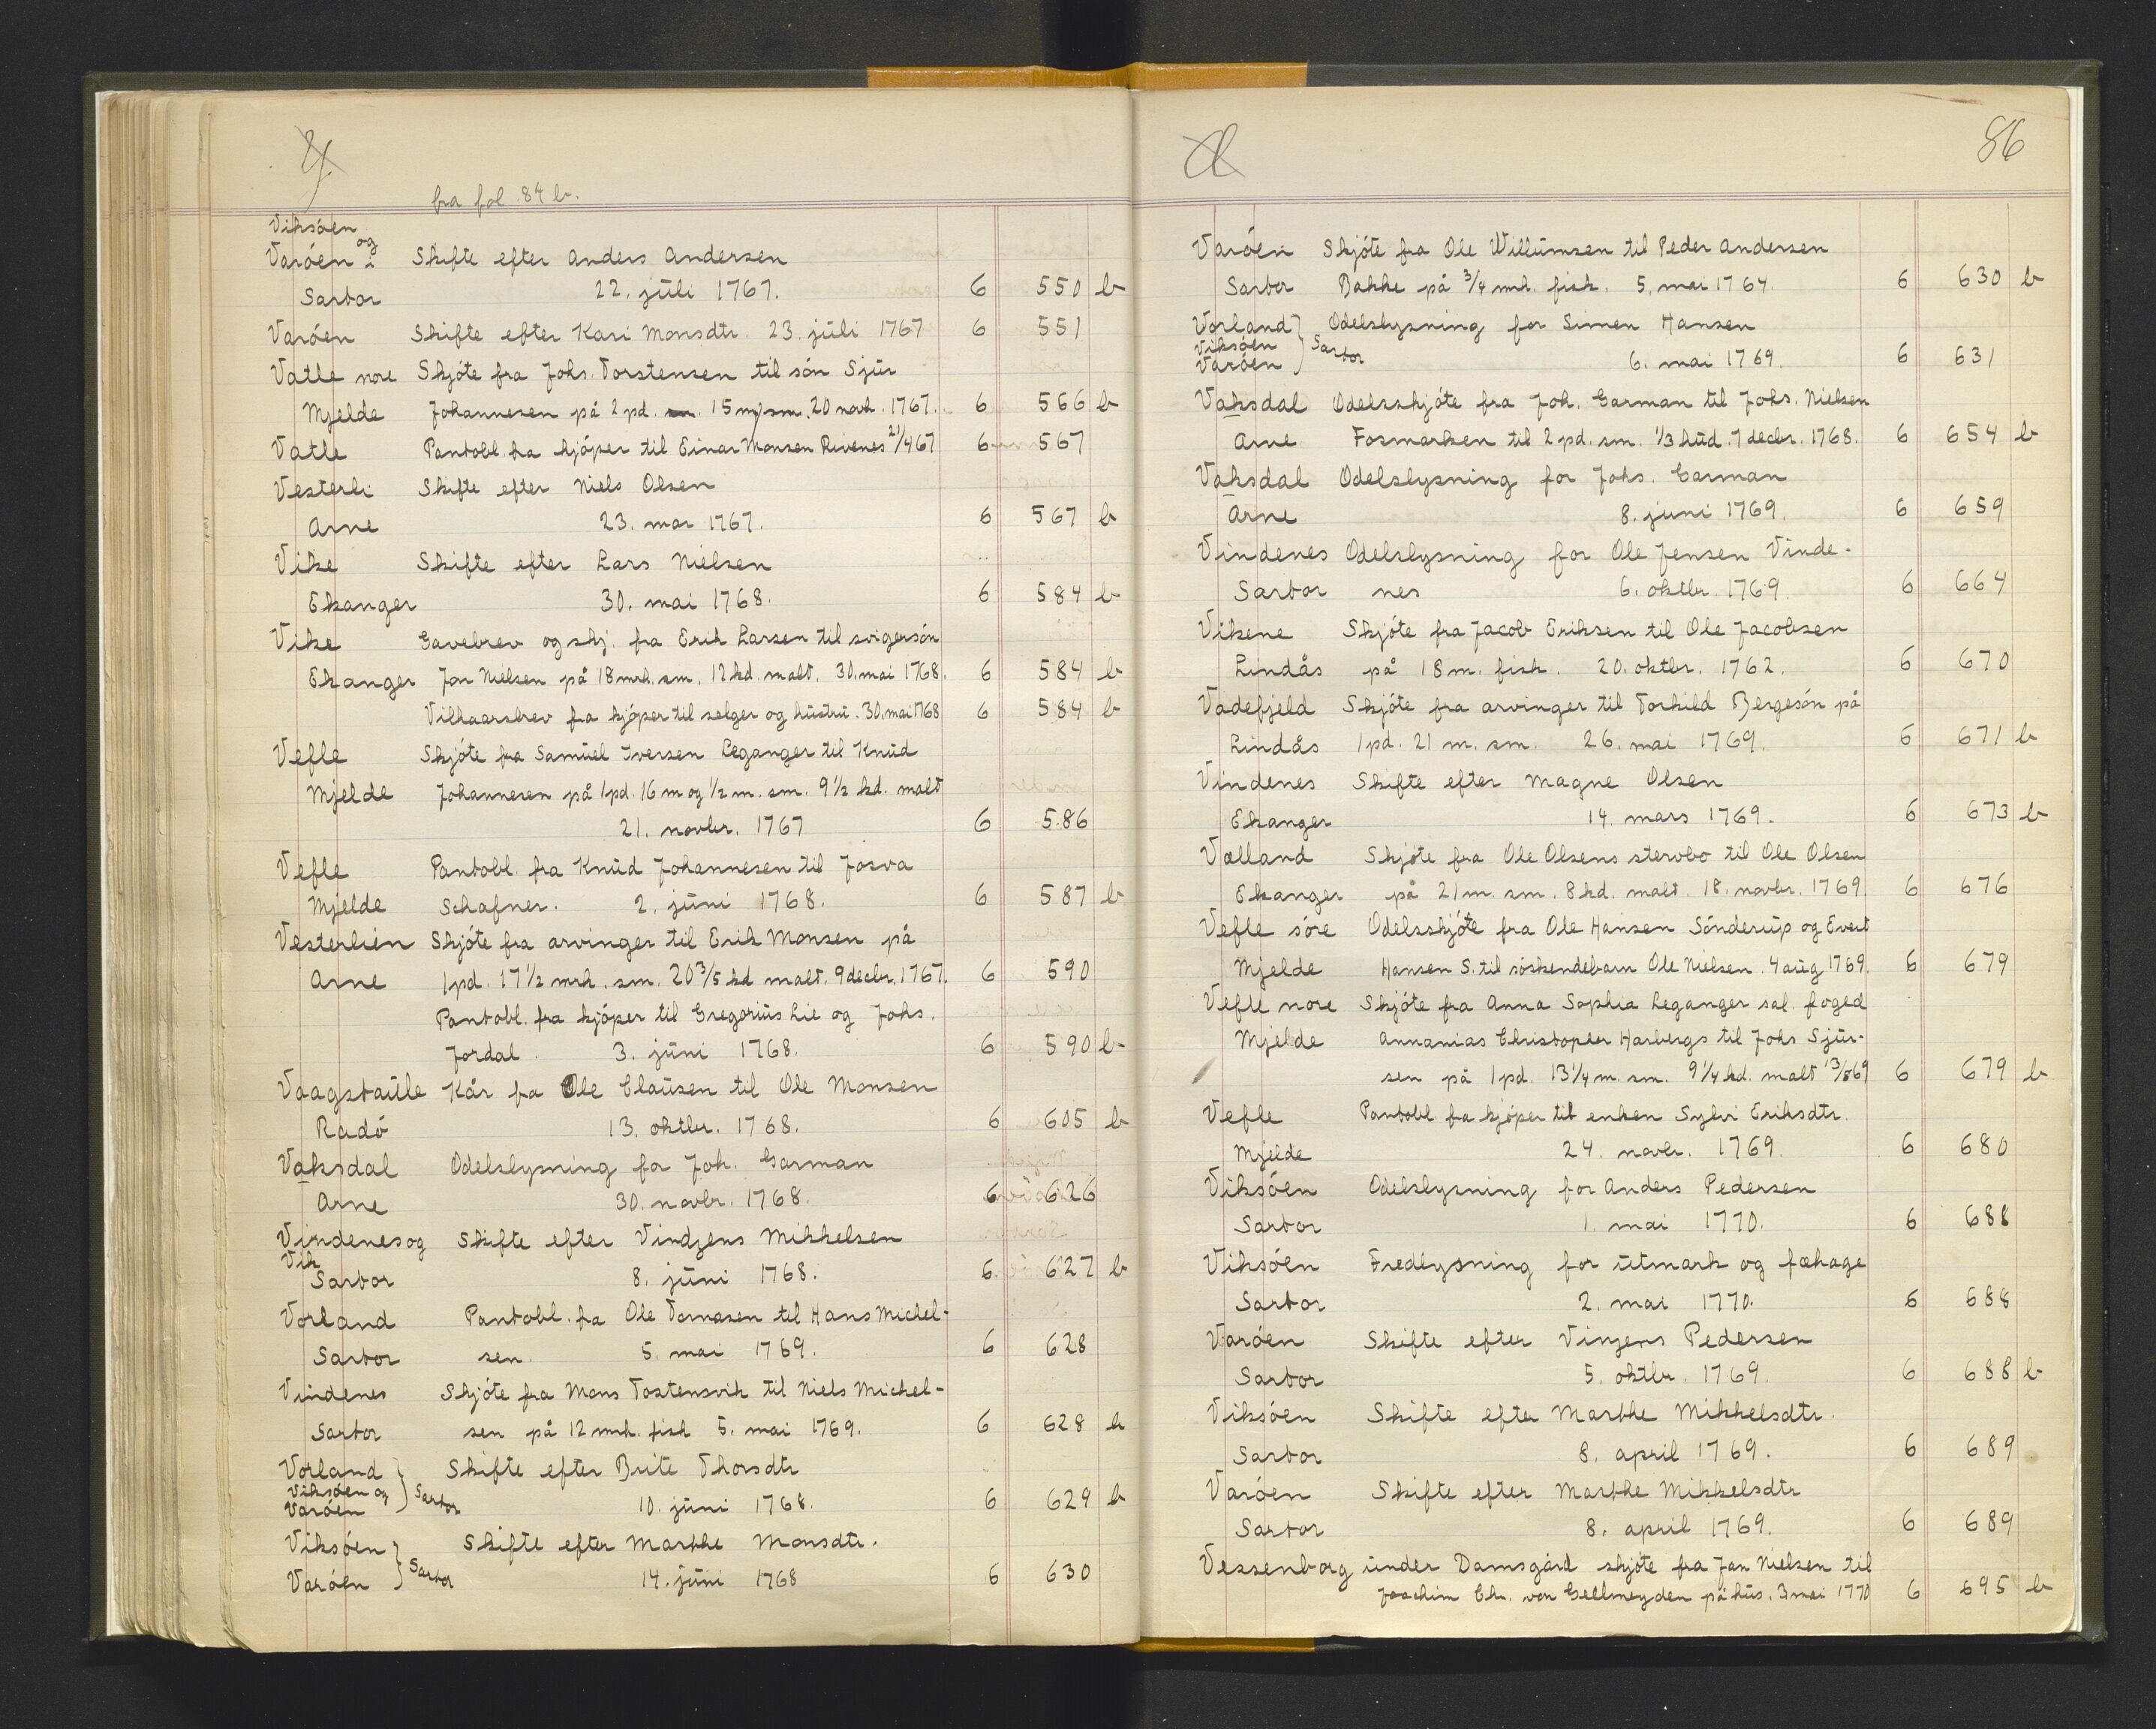 fra fol. 84 b.
Viksöen
og
Varöen i Skifte efter Anders Andersen
Sartor 22. juli 1767. 6 550 b
Varöen Skifte efter Kari Monsdtr. 23. juli 1767 6 551
Vatle nore Skjöte fra Johs. Torstensen til sön Sjur
Mjelde Johannesen på 2 pd. 15 m sm. 20 novb. 1767. 6 566 b
Vatle Pantobl. fra kjöper til Einar Monsen Rivenes 21/4 67 6 567
Vesterli Skifte efter Niels Olsen
Arne 23. mar 1767. 6 567 b
Vike Skifte efter Lars Nielsen
Ekanger 30. mai 1768. 6 584 b
Vike Gavebrev og skj. fra Erik Larsen til svigersön
Ekanger Jon Nielsen på 18 mrk. sm. 12 kd. malt. 30. mai 1768. 6 584 b
Vilkaarsbrev fra kjöper til selger og hustru. 30. mai 1768 6 584 b
Vefle Skjöte fra Samuel Iversen Leganger til Knud
Mjelde Johannesen på 1 pd. 16 m og 1/2 m. sm. 9 1/2 kd. malt
21. novbr. 1767 6 586
Vefle Pantobl. fra Knud Johannesen til Josva
Mjelde Schafner. 2. juni 1768. 6 587 b
Vesterlien Skjöte fra arvinger til Erik Monsen på
Arne 1 pd. 17 1/2 mrk. sm. 20 3/5 kd malt. 9 decbr. 1767. 6 590
Pantobl. fra kjöper til Gregorius Lie og Johs.
Jordal. 3. juni 1768. 6 590 b
Vaagstaule Kår fra Ole Clausen til Ole Monsen
Radö 13. oktbr. 1768. 6 605 b
Vaksdal Odelslysning for Joh. Garman
Arne 30. novbr. 1768. 6 626
Vindenes og Skifte efter Vindzens Mikkelsen
Vik
Sartor 8. juni 1768. 6 627 b
Vorland Pantobl. fra Ole Tomasen til Hans Michel-
Sartor sen. 5. mai 1769. 6 628
Vindenes Skjöte fra Mons Tostensvik til Niels Michel-
Sartor sen på 12 mrk. fisk 5. mai 1769. 6 628 b
Vorland Skifte efter Brite Thorsdtr
Viksöen og Sartor
Varöen 10. juni 1768. 6 629 b
Viksöen Skifte efter Marthe Monsdtr.
Sartor
Varöen 14. juni 1768 6 630
86
Varöen Skjöte fra Ole Willumsen til Peder Andersen
Sartor Bakke på 3/4 mrk. fisk. 5. mai 1764. 6 630 b
Vorland Odelslysning for Simen Hansen
Viksöen Sartor
Varöen 6. mai 1769. 6 631
Vaksdal Odelsskjöte fra Joh. Garman til Johs. Nielsen
Arne Fosmarken til 2 pd. sm. 1/3 hud. 7 decbr. 1768. 6 654 b
Vaksdal Odelslysning for Johs. Garman
Arne 8. juni 1769. 6 659
Vindenes Odelslysning for Ole Jensen Vinde-
Sartor nes 6. oktbr. 1769. 6 664
Vikene Skjöte fra Jacob Eriksen til Ole Jacobsen
Lindås på 18 m. fisk. 20. oktbr. 1762. 6 670
Vadefjeld Skjöte fra arvinger til Torkild Bergesön på
Lindås 1 pd. 21 m. sm. 26. mai 1769. 6 671 b
Vindenes Skifte efter Magne Olsen
Ekanger 14. mars 1769. 6 673 b
Valland Skjöte fra Ole Olsens stervbo til Ole Olsen
Ekanger på 21 m. sm. 8 kd. malt. 18. novbr. 1769. 6 676
Vefle söre Odelsskjöte fra Ole Hansen Sönderup og Evert
Mjelde Hansen S. til söskendebarn Ole Nielsen. 4 aug 1769. 6 679
Vefle nore Skjöte fra Anna Sophia Leganger sal. foged
Mjelde Annanias Christopher Harbergs til Johs Sjur-
sen på 1 pd. 13 1/4 m. sm. 9 1/4 kd. malt 13/5 69 6 679 b
Vefle Pantobl. fra kjöper til enken Sylvi Eriksdtr.
Mjelde 24. novbr. 1769. 6 680
Viksöen Odelslysning for Anders Pedersen
Sartor 1. mai 1770. 6 688
Viksöen Fredlysning for utmark og fæhage
Sartor 2. mai 1770. 6 688
Varöen Skifte efter Vinzens Pedersen
Sartor 5. oktbr. 1769. 6 688 b
Viksöen Skifte efter Marthe Mikkelsdtr.
Sartor 8. april 1769. 6 689
Varöen Skifte efter Marthe Mikkelsdtr
Sartor 8. april 1769. 6 689
Vessenborg under Damsgård skjöte fra Jan Nielsen til
Joachim Chr. von Gellmeyden på hus. 3 mai 1770 6 695 b